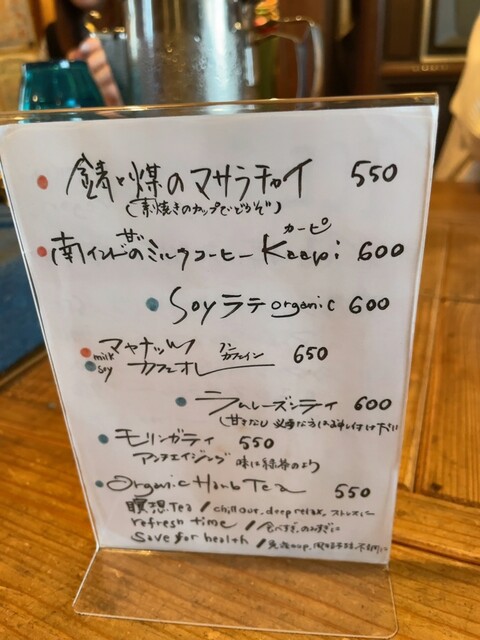 錆と煤のマサラチャイ 550
(素焼きのカップでどうぞ)
カーピ
南インドの甘いミルクコーヒー Kaapi 600
Soyラテ organic 600
マヤナッツ ノンカフェイン 650
milk
soy カフェオレ
ラムレーズンティ 600
(甘さなし 必要な方はお申し付け下さい
モリンガティ 550
アンチエイジング 味は緑茶のよう
Organic Herb Tea 550
瞑想Tea / chillout, deep relax, ストレスに
refresh time / 食べすぎ、のみすぎに
Save for health / 免疫up,